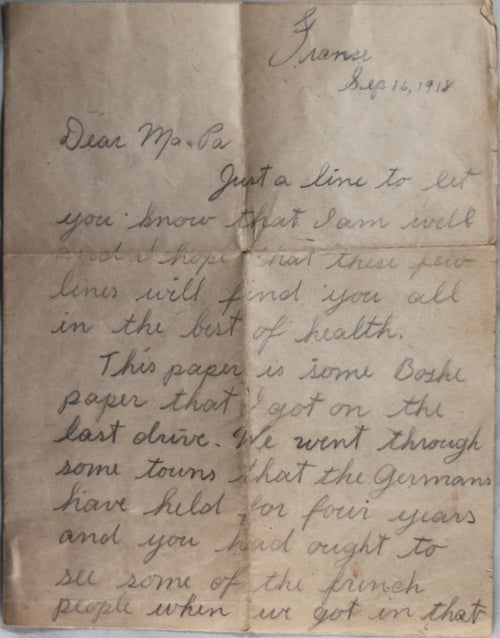 France
Sep 16, 1918
Dear Ma & Pa
Just a line to let
you know that I am well
and I hope that these few
lines will find you all
in the best of health.
This paper is some Boshe
paper that I got on the
last drive. We went through
some towns that the Germans
have held for four years
and you had ought to
see some of the french
people when we got in that